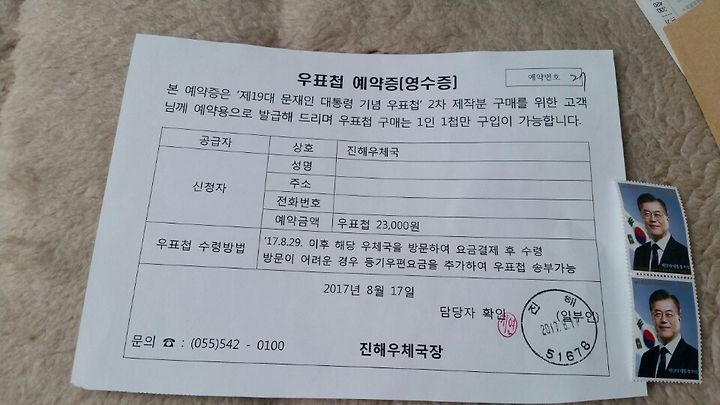 우표첩 예약증[영수증]
예약번호
본 예약증은 '제19대 문재인 대통령 기념 우표첩' 2차 제작분 구매를 위한 고객
님께 예약용으로 발급해 드리며 우표첩 구매는 1인 1첩만 구입이 가능합니다.
공급자 상호 진해우체국
신청자 성명
주소
전화번호
예약금액 우표첩 23,000원
우표첩 수령방법 '17.8.29. 이후 해당 우체국을 방문하여 요금결제 후 수령
방문이 어려운 경우 등기우편요금을 추가하여 우표첩 송부가능
2017년 8월 17일
담당자 확인 (일부인)
진해
2017.8.17
51678
문의 ☎ : (055)542 - 0100 진해우체국장